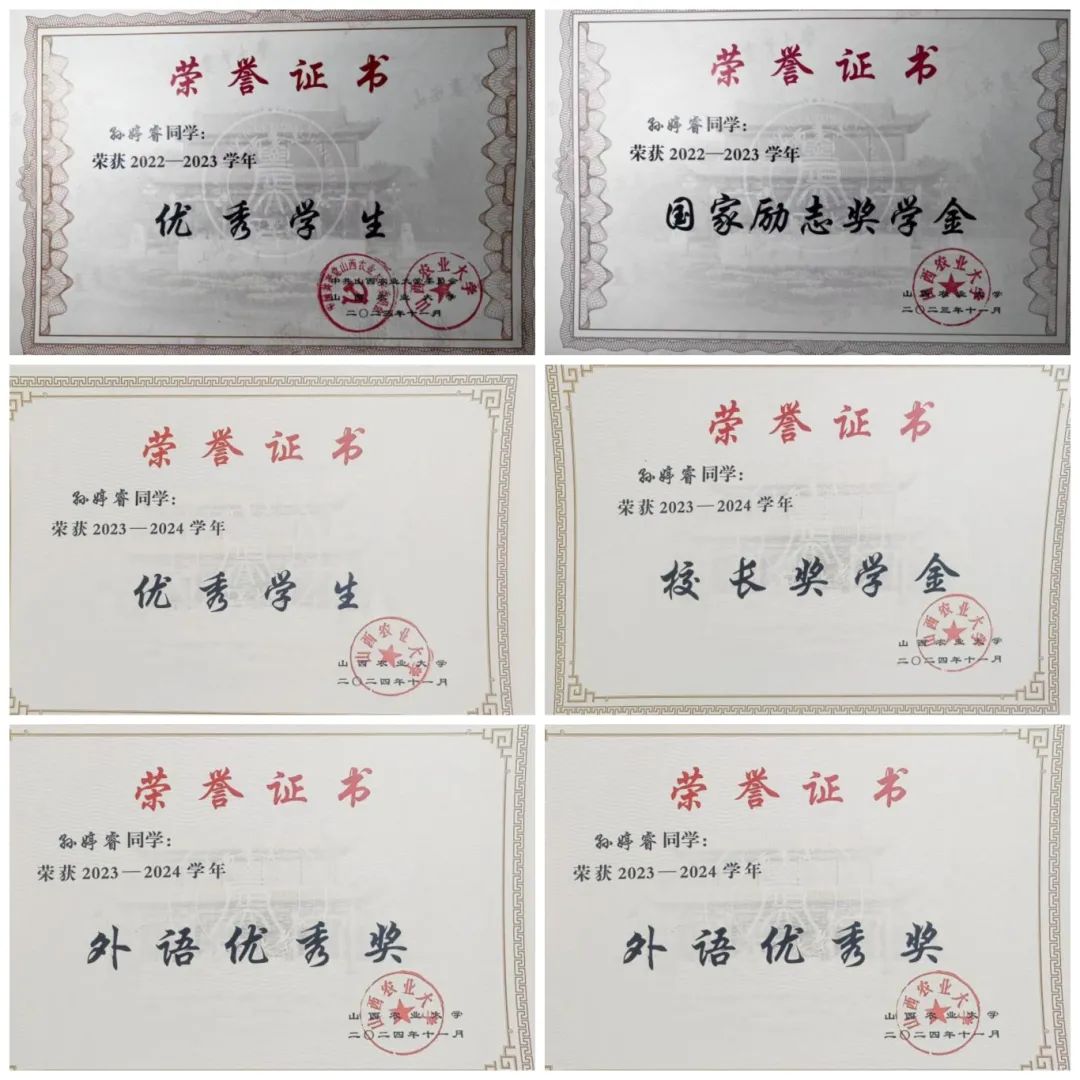 荣誉证书
孙婷睿同学：
荣获2022—2023学年
优秀学生
中共山西农业大学委员会
山西农业大学
二〇二三年十一月
荣誉证书
孙婷睿同学：
荣获2022—2023学年
国家励志奖学金
山西农业大学
二〇二三年十一月
荣誉证书
孙婷睿同学：
荣获2023—2024学年
优秀学生
山西农业大学
二〇二四年十一月
荣誉证书
孙婷睿同学：
荣获2023—2024学年
校长奖学金
山西农业大学
二〇二四年十一月
荣誉证书
孙婷睿同学：
荣获2023—2024学年
外语优秀奖
山西农业大学
二〇二四年十一月
荣誉证书
孙婷睿同学：
荣获2023—2024学年
外语优秀奖
山西农业大学
二〇二四年十一月